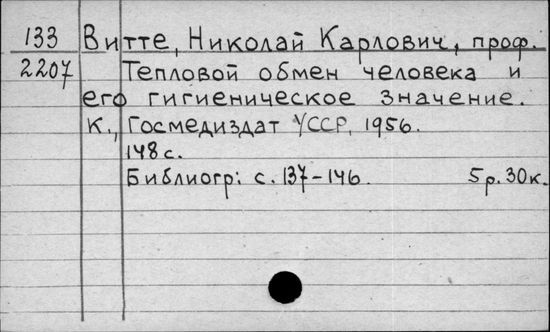 133 Витте, Николай Карлович, проф.
2207 Тепловой обмен человека и
его гигиеническое значение.
К., Госмедиздат УССР, 1956.
148 с.
Библиогр: с. 137-146. 5р. 30к.